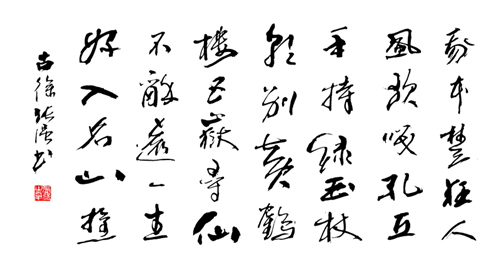 我本楚狂人
風歌咲孔丘
手持緑玉杖
朝別黃鶴
樓五嶽尋仙
不辭遠一生
好入名山遊
古徐張書